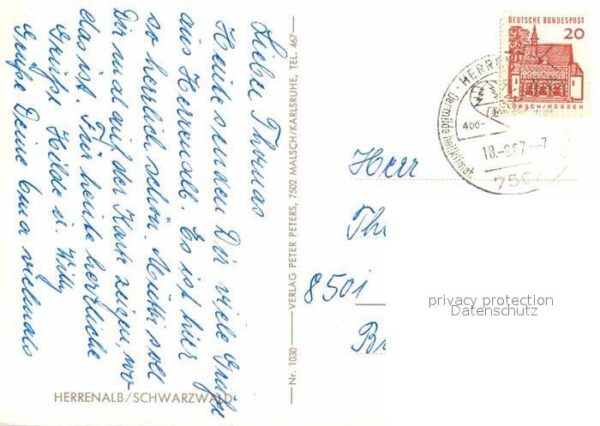 Lieber Thomas
Heute senden Dir viele Grüße
aus Herrenalb. Es ist hier
so herrlich schön. Mutti soll
Dir mal auf der Karte zeigen, wo
das ist. Für heute herzliche
Grüße Hilde u. Willy
Grüße Deine Oma vielmals
HERRENALB/SCHWARZWALD
Nr. 1030 — VERLAG PETER PETERS, 7502 MALSCH/KARLSRUHE, TEL. 467
DEUTSCHE BUNDESPOST
20
LORSCH/HESSEN
HERREN
400-
756
Herr
Th
8501
privacy protection
Datenschutz